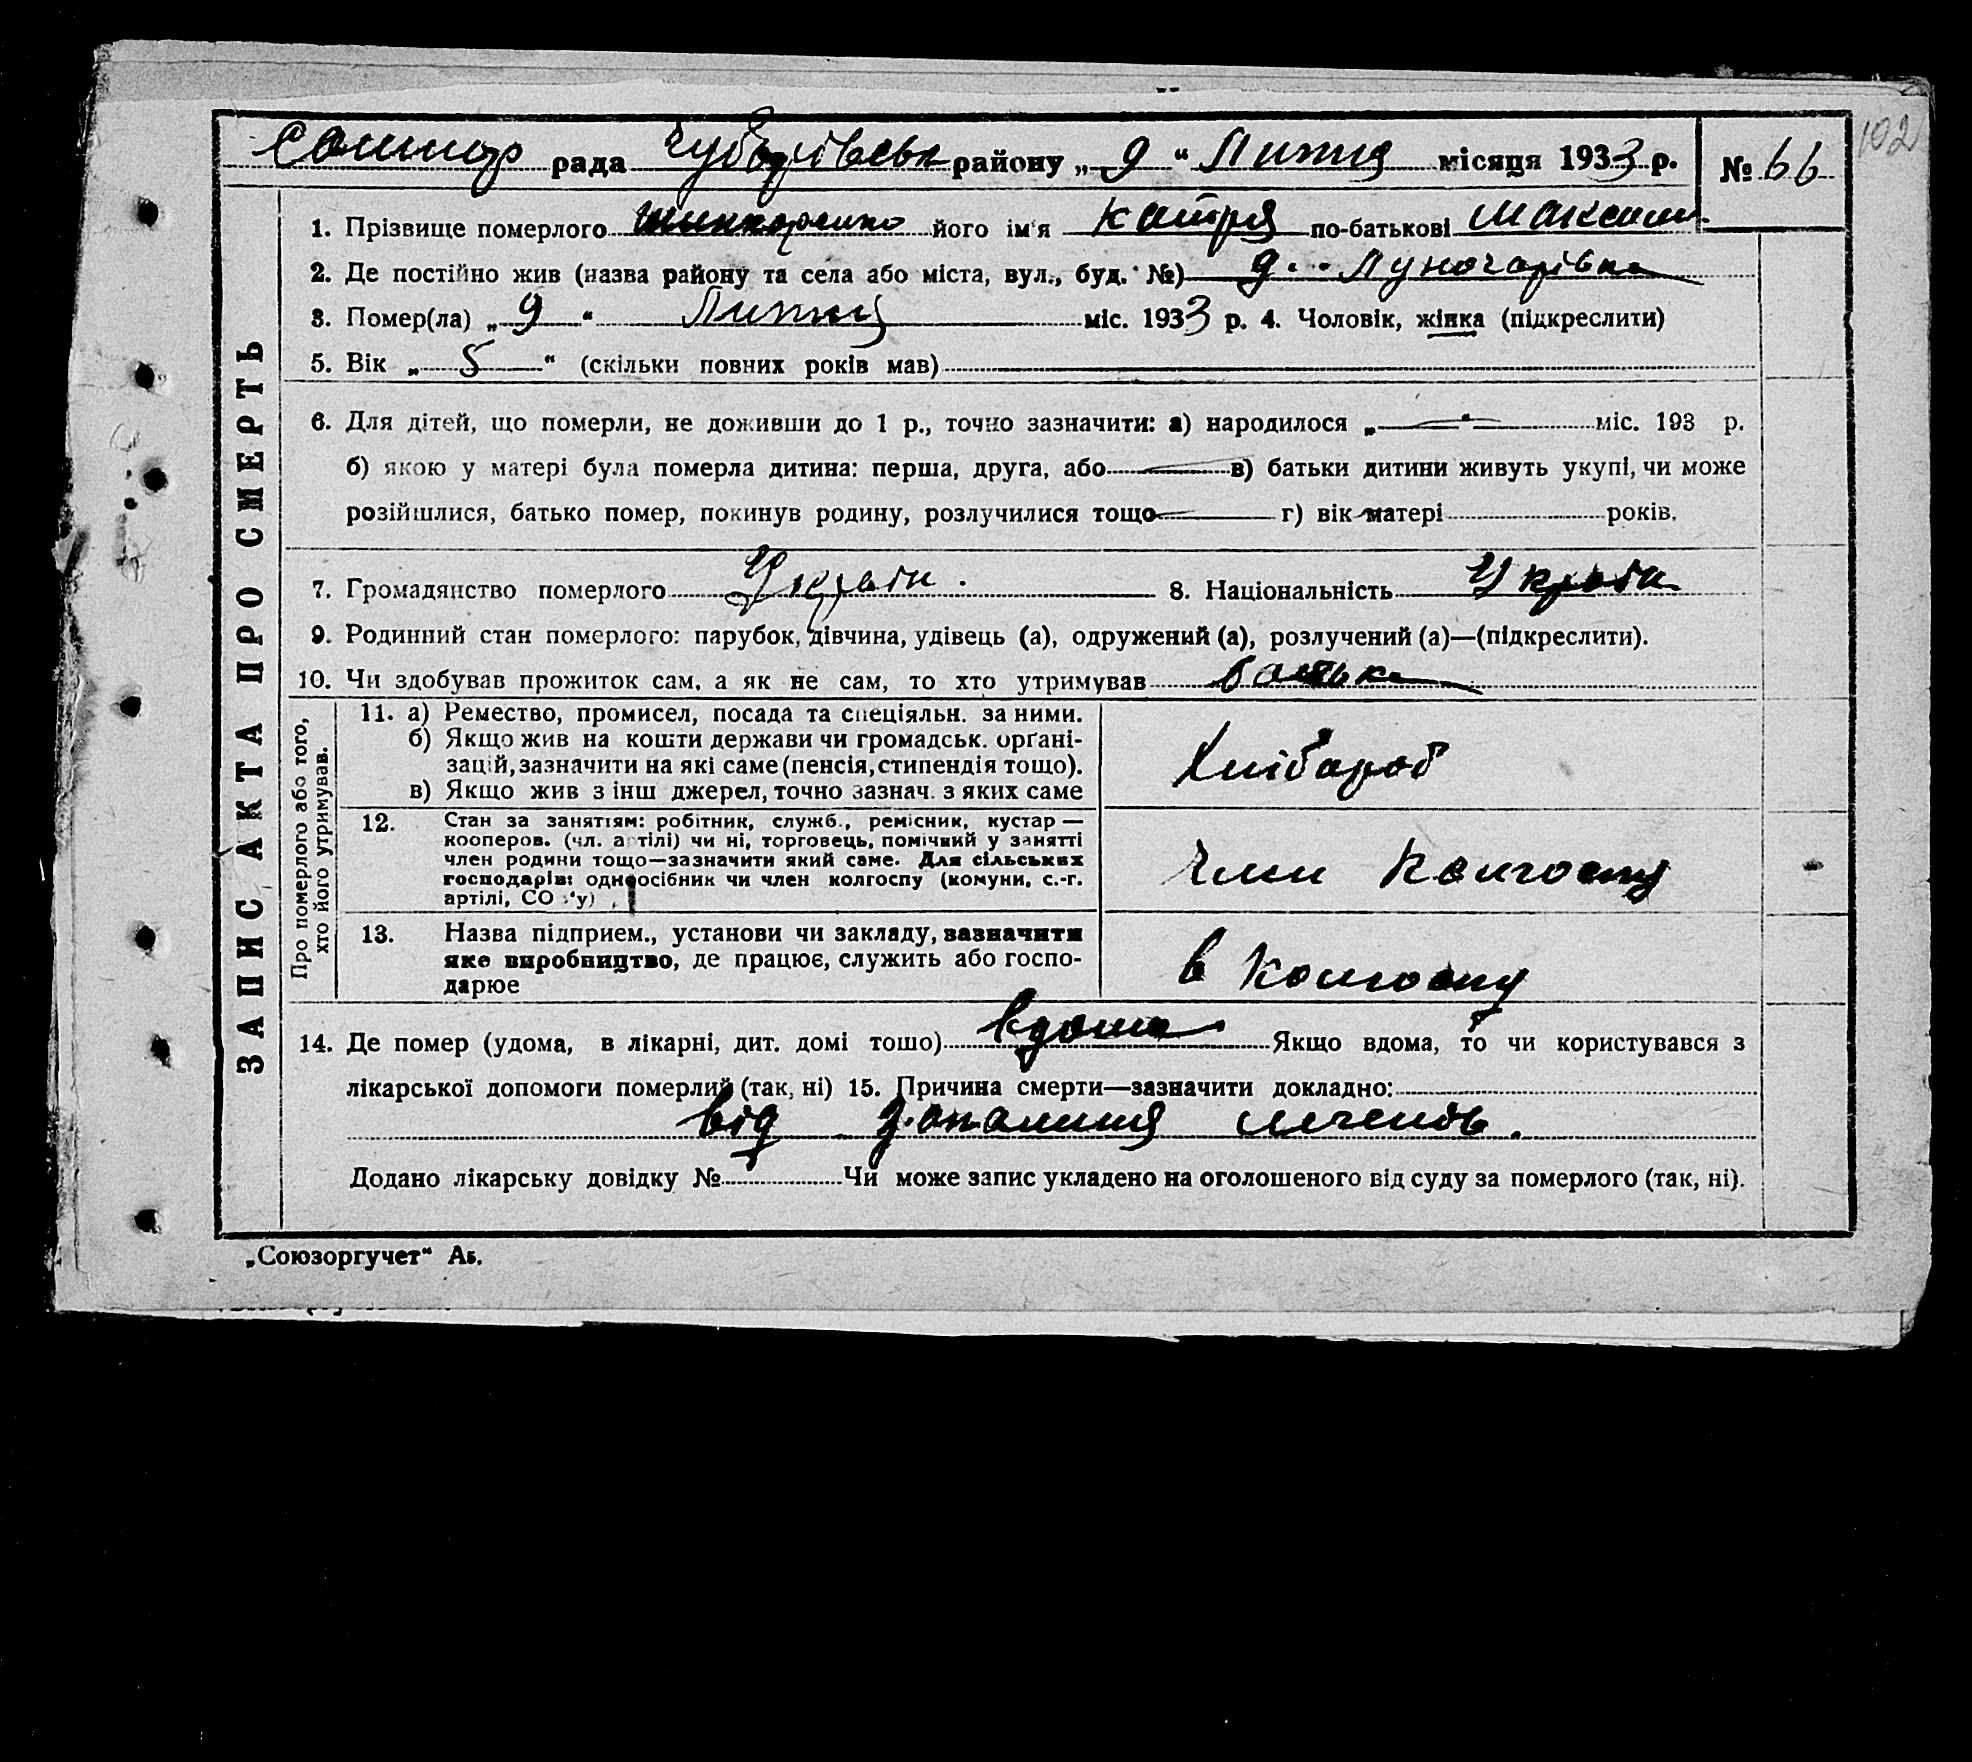 102
рада Чубарівськ району „ 9 “ Липня місяця 1933 р. № 66
ЗАПИС АКТА ПРО СМЕРТЬ
1. Прізвище померлого Шинкаренко його ім'я Катря по-батькові Максим.
2. Де постійно жив (назва району та села або міста, вул., буд. №) Луночарівка
3. Помер(ла) „ 9 “ Липня міс. 1933 р. 4. Чоловік, жінка (підкреслити)
5. Вік „ 5 “ (скільки повних років мав)
6. Для дітей, що померли, не доживши до 1 р., точно зазначити: а) народилося „ — “ міс. 193 р.
б) якою у матері була померла дитина: перша, друга, або — в) батьки дитини живуть укупі, чи може
розійшлися, батько помер, покинув родину, розлучилися тощо — г) вік матері років.
7. Громадянство померлого Украін. 8. Національність Украін
9. Родинний стан померлого: парубок, дівчина, удівець (а), одружений (а), розлучений (а)—(підкреслити).
10. Чи здобував прожиток сам, а як не сам, то хто утримував батько
Про померлого або того,
хто його утримував.
11. а) Ремество, промисел, посада та спеціяльн. за ними.
б) Якщо жив на кошти держави чи громадськ. орґані-
зацій, зазначити на які саме (пенсія, стипендія тощо).
в) Якщо жив з інш джерел, точно зазнач. з яких саме
Хлібароб
12. Стан за заняттям: робітник, служб., ремісник, кустар —
кооперов. (чл. артілі) чи ні, торговець, помічний у занятті
член родини тощо—зазначити який саме. Для сільських
господарів: одноосібник чи член колгоспу (комуни, с.-г.
артілі, СОЗ'у)
член колгоспу
13. Назва підприєм., установи чи закладу, зазначити
яке виробництво, де працює, служить або госпо-
дарює
в колгоспу
14. Де помер (удома, в лікарні, дит. домі тощо) вдома Якщо вдома, то чи користувався з
лікарської допомоги померлий (так, ні) 15. Причина смерти—зазначити докладно:
від легенів.
Додано лікарську довідку № Чи може запис укладено на оголошеного від суду за померлого (так, ні).
„Союзоргучет“ Аб.